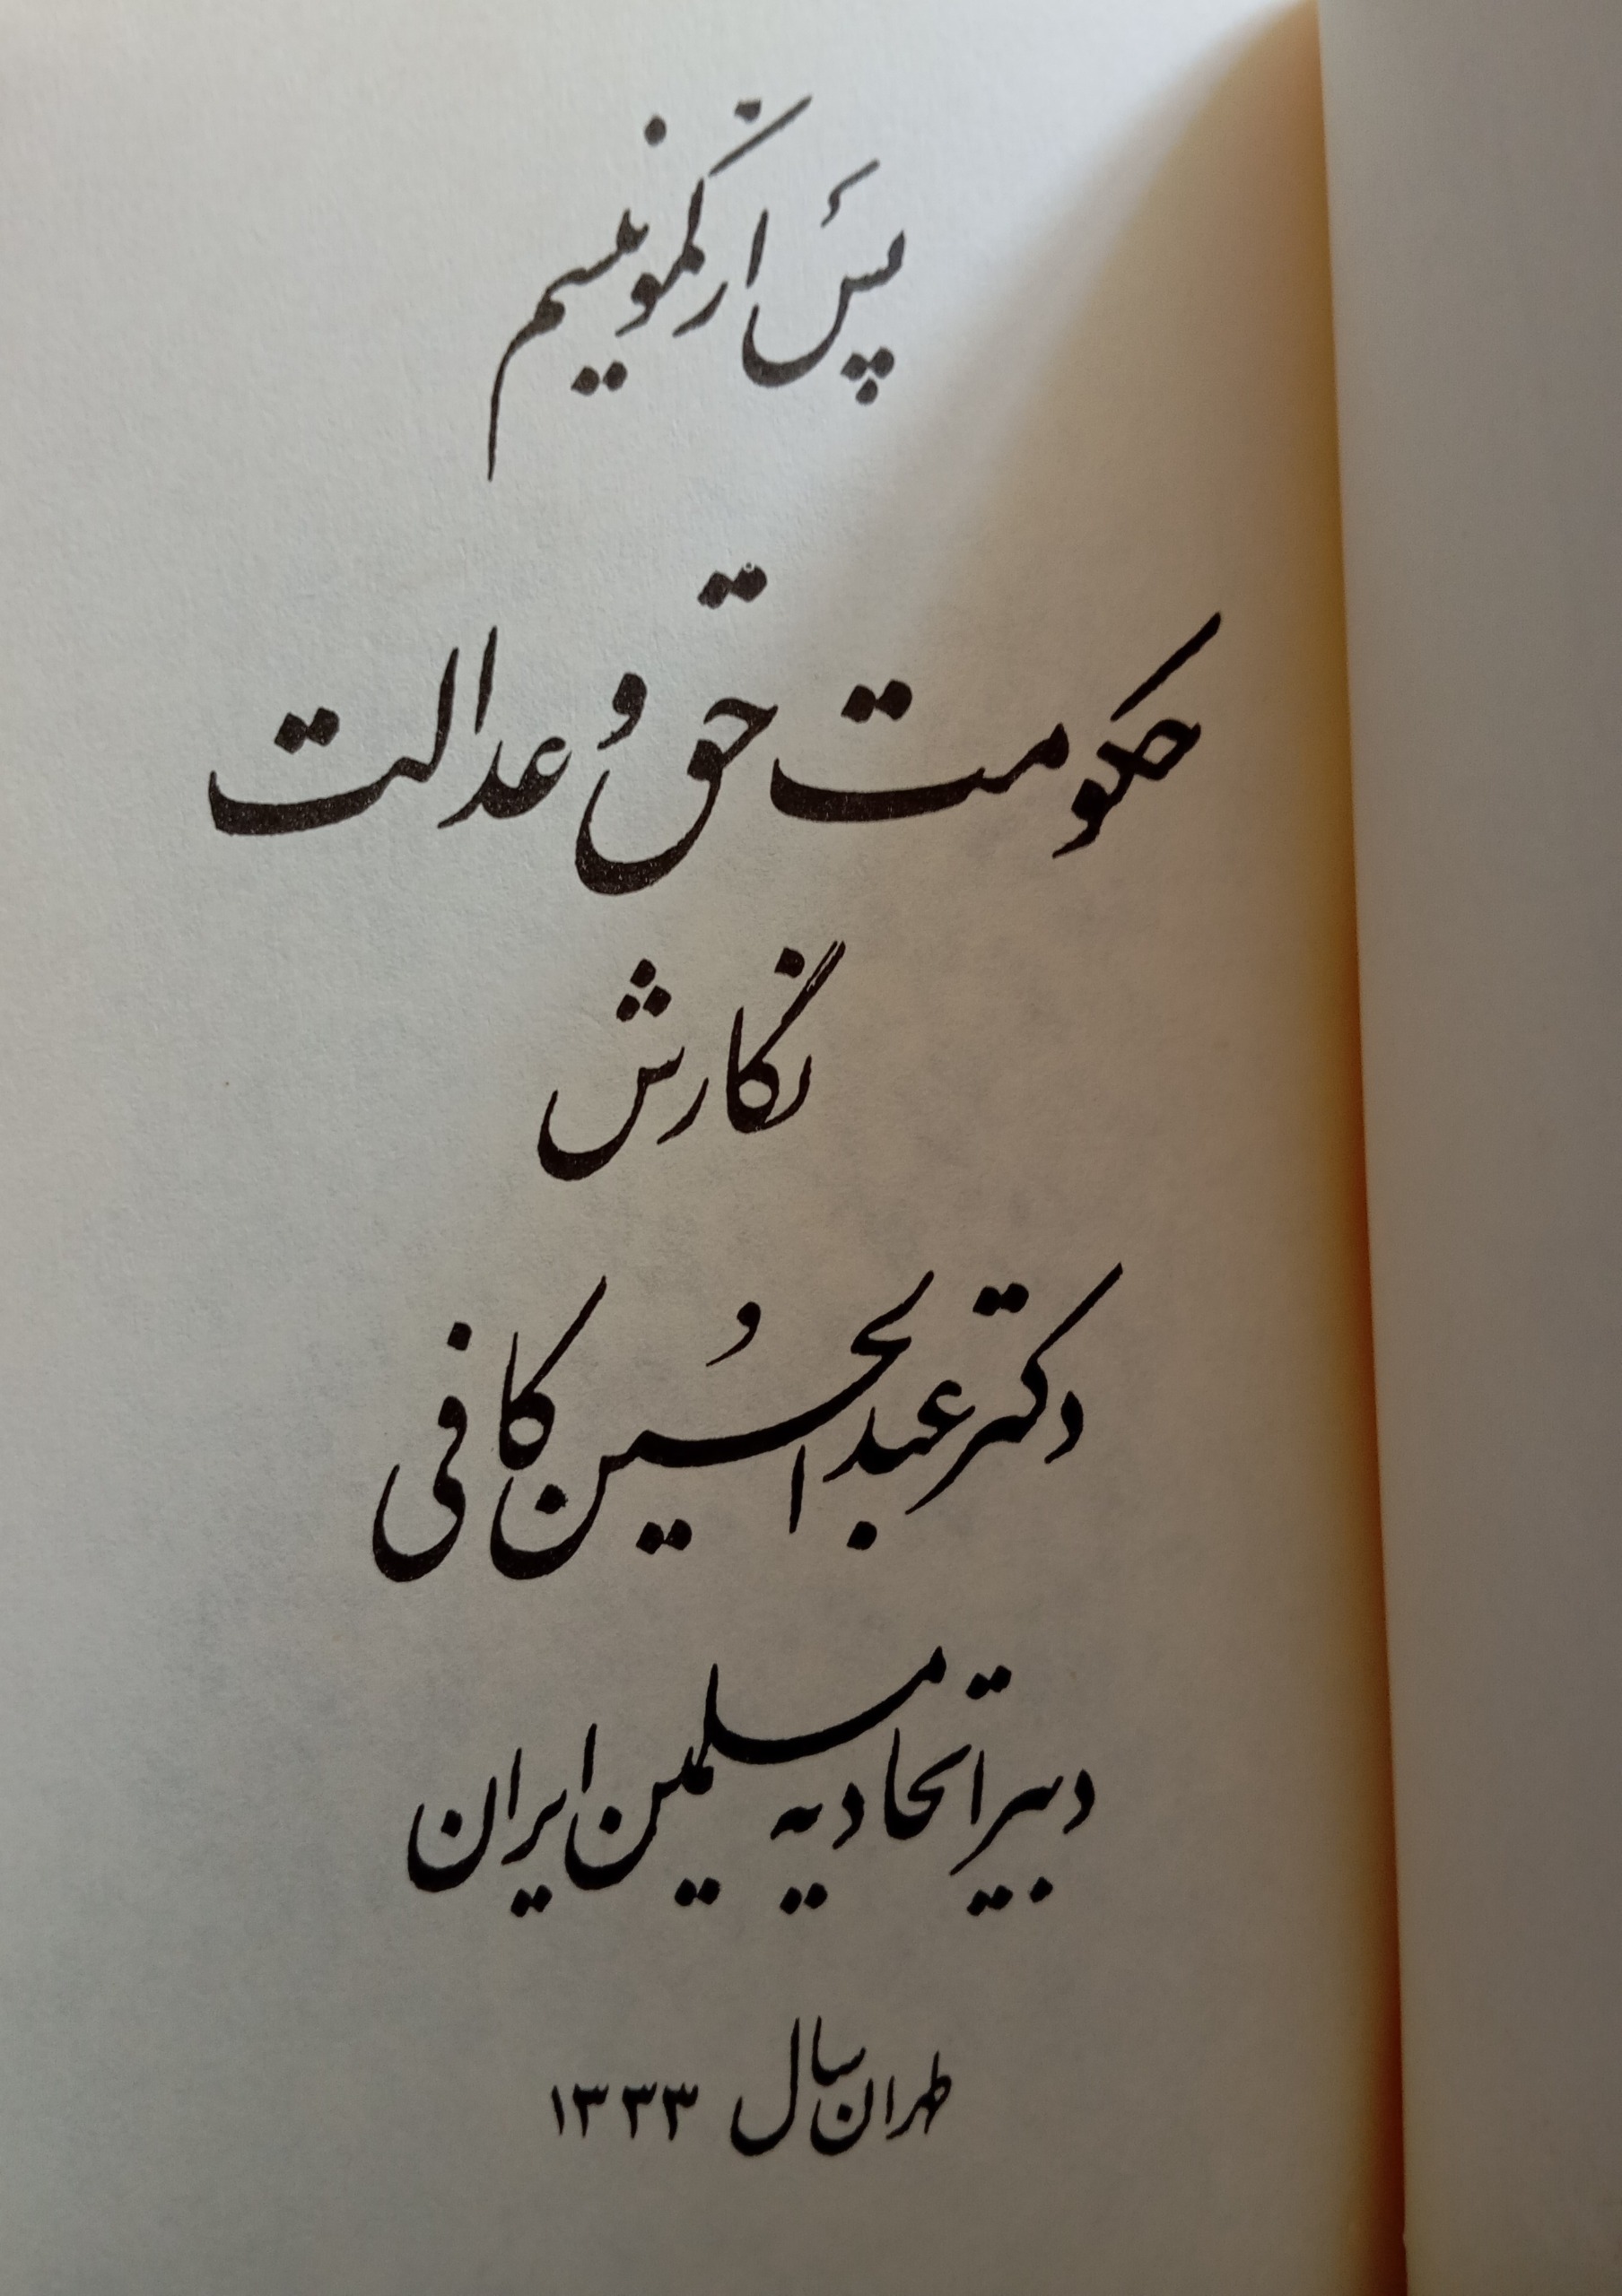 پس از کمونیسم
حکومت حق و عدالت
نگارش
دکتر عبدالحسین کافی
دبیر اتحادیه مسلمین ایران
طهران سال ۱۳۳۳